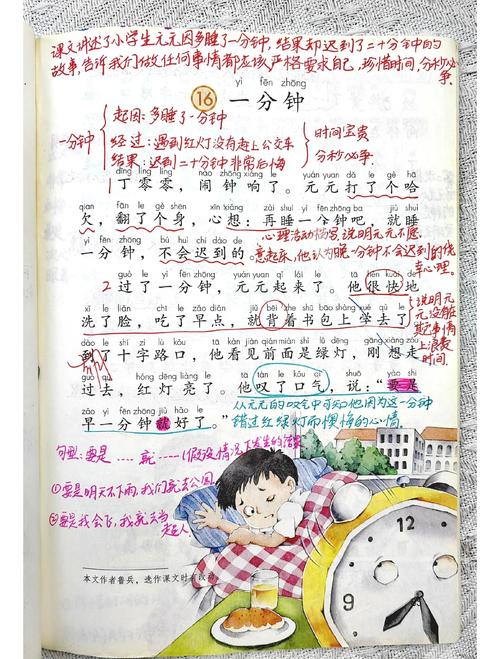 课文讲述了小学生元元因多睡了一分钟,结果却迟到了二十分钟的
故事,告诉我们做任何事情都应该严格要求自己,珍惜时间,分秒必
争。
yì fēn zhōng
16 一分钟
一分钟
起因:多睡了一分钟
经过:遇到红灯没有赶上公交车
结果:迟到二十分钟非常后悔
时间宝贵
分秒必争.
dīng líng líng nào zhōng xiǎng le yuán yuan dǎ le gè hā
1丁零零,闹钟响了。元元打了个哈
qian fān le gè shēn xīn xiǎng zài shuì yì fēn zhōng ba jiù shuì
欠,翻了个身,心想:再睡一分钟吧,就睡
yì fēn zhōng bú huì chí dào de
一分钟,不会迟到的。
心理活动描写,说明元元不愿
意起床,他认为晚一分钟不会迟到的侥
幸心理。
guò le yì fēn zhōng yuán yuan qǐ lái le tā hěn kuài de
2过了一分钟,元元起来了。他很快地
xǐ le liǎn chī le zǎo diǎn jiù bēi zhe shū bāo shàng xué qù le
洗了脸,吃了早点,就背着书包上学去了。
说明元
元没在
其它事情
上浪费
时间.
dào le shí zì lù kǒu tā kàn jiàn qián miàn shì lǜ dēng gāng xiǎng zǒu
到了十字路口,他看见前面是绿灯,刚想走
guò qù hóng dēng liàng le tā tàn le kǒu qì shuō yào shi
过去,红灯亮了。他叹了口气,说:“要是
zǎo yì fēn zhōng jiù hǎo le
早一分钟就好了。”
从元元的叹气中可知他因为这一分钟
错过红绿灯而懊悔的心情.
句型:要是……就……(假设情况下发生的
①要是明天不下雨,我们就去公园.
②要是我会飞,我就去当
超人.
本文作者鲁兵,选作课文时有改动。
12
3
6